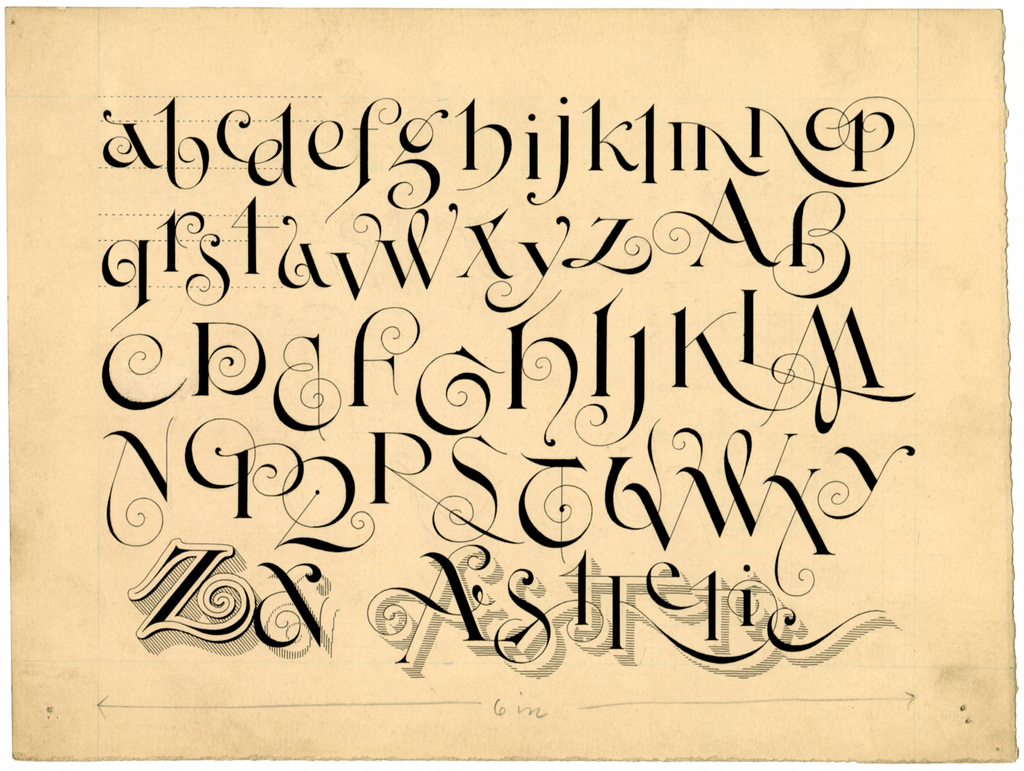 abcdefghijklmnop
qrstuvwxyzAB
CDEFGHIJKLM
NOPQRSTUVWXY
Z& Æsthetic
6 in